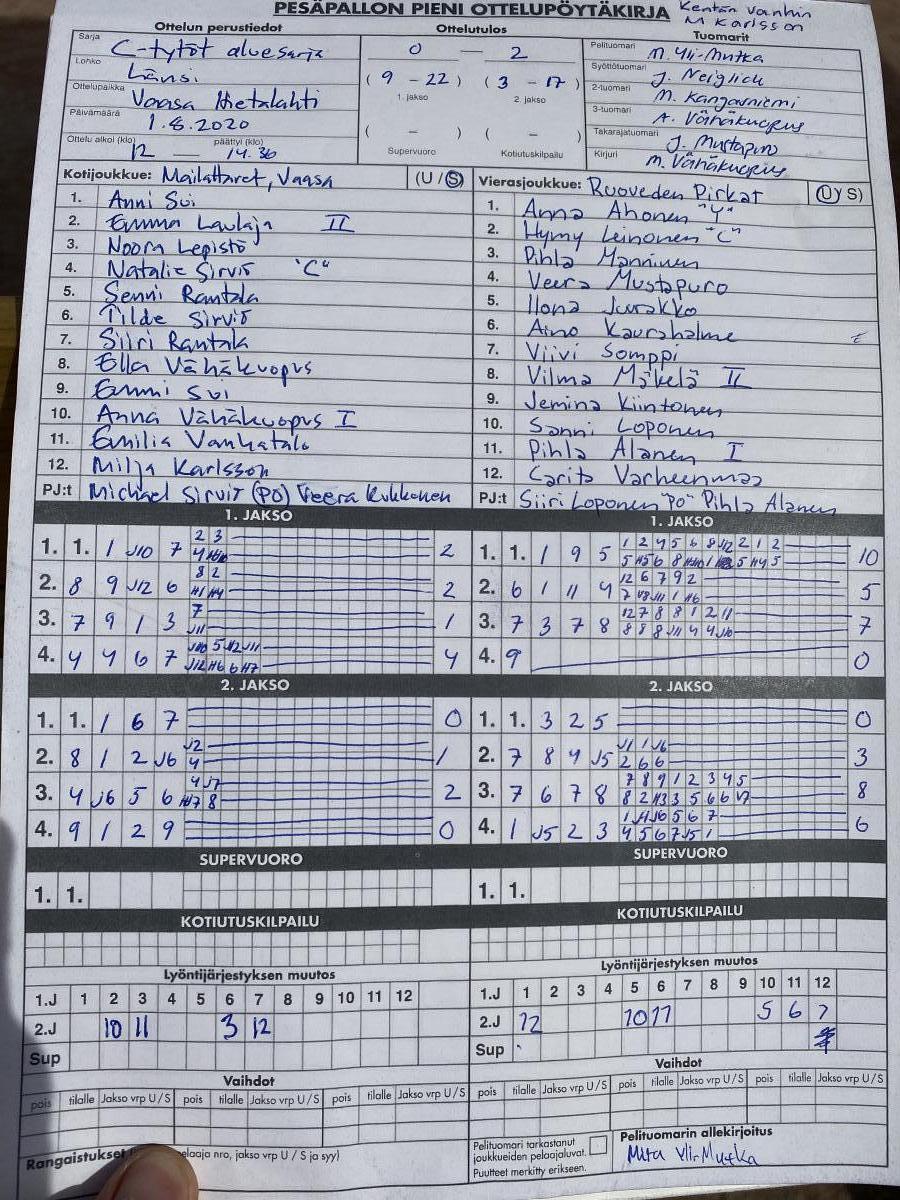 PESÄPALLON PIENI OTTELUPÖYTÄKIRJA
Kentän vanhin
M Karlsson
Ottelun perustiedot
Ottelutulos
Tuomarit
Sarja C-tytöt aluesarja
Lohko Länsi
Ottelupaikka Vaasa Hietalahti
Päivämäärä 1.8.2020
Ottelu alkoi (klo) päättyi (klo)
12 — 14.36
0 — 2
(9 - 22) (3 - 17)
1. jakso 2. jakso
( - ) ( - )
Supervuoro Kotiutuskilpailu
Pelituomari M. Yli-Mutka
Syöttötuomari J. Neiglick
2-tuomari M. Kangasniemi
3-tuomari A. Vähäkuopus
Takarajatuomari J. Mustapuro
Kirjuri M. Vähäkuopus
Kotijoukkue: Mailattaret, Vaasa (U / S)
1. Anni Sui
2. Emma Laulaja II
3. Noora Lepistö
4. Natalie Sirviö "C"
5. Senni Rantala
6. Tilde Sirviö
7. Siiri Rantala
8. Ella Vähäkuopus
9. Emmi Sui
10. Anna Vähäkuopus I
11. Emilia Vanhatalo
12. Milja Karlsson
PJ:t Michael Sirviö (PO) Veera Kukkonen
Vierasjoukkue: Ruoveden Pirkat (U / S)
1. Anna Ahonen "Y"
2. Hymy Leinonen "C"
3. Pihla Manninen
4. Veera Mustapuro
5. Ilona Jurakko
6. Aino Kauraholme
7. Viivi Somppi
8. Vilma Mäkelä II
9. Jemina Kiintonen
10. Sanni Loponen
11. Pihla Alanen I
12. Carita Varheenmaa
PJ:t Siiri Loponen "PO" Pihla Alanen
1. JAKSO
1. 1. 1 J10 7 2 3 2
2. 8 9 J12 6 8 2 2
3. 7 9 1 3 7 J11 1
4. 4 4 6 7 4
1. JAKSO
1. 1. 1 9 5 1 2 4 5 6 8 J12 2 1 2 10
2. 6 1 11 4 12 6 7 9 2 5
3. 7 3 7 8 12 7 8 8 1 2 11 8 8 8 J11 4 4 J10 7
4. 9 0
2. JAKSO
1. 1. 1 6 7 0
2. 8 1 2 J6 J2 4 1
3. 4 J6 5 6 4 J7 8 2
4. 9 1 2 9 0
2. JAKSO
1. 1. 3 2 5 0
2. 7 8 4 J5 J1 1 J6 2 6 6 3
3. 7 6 7 8 7 8 9 1 2 3 4 5 8
4. 1 J5 2 3 4 5 6 7 J5 1 6
SUPERVUORO
1. 1.
SUPERVUORO
1. 1.
KOTIUTUSKILPAILU
KOTIUTUSKILPAILU
Lyöntijärjestyksen muutos
1.J 1 2 3 4 5 6 7 8 9 10 11 12
2.J 10 11 3 12
Sup
Lyöntijärjestyksen muutos
1.J 1 2 3 4 5 6 7 8 9 10 11 12
2.J 12 10 11 5 6 7
Sup
Vaihdot
pois tilalle Jakso vrp U / S pois tilalle Jakso vrp U / S pois tilalle Jakso vrp U / S
Vaihdot
pois tilalle Jakso vrp U / S pois tilalle Jakso vrp U / S pois tilalle Jakso vrp U / S
Rangaistukset elaaja nro, jakso vrp U / S ja syy)
Pelituomari tarkastanut
joukkueiden pelaajaluvat.
Puutteet merkitty erikseen.
Pelituomarin allekirjoitus